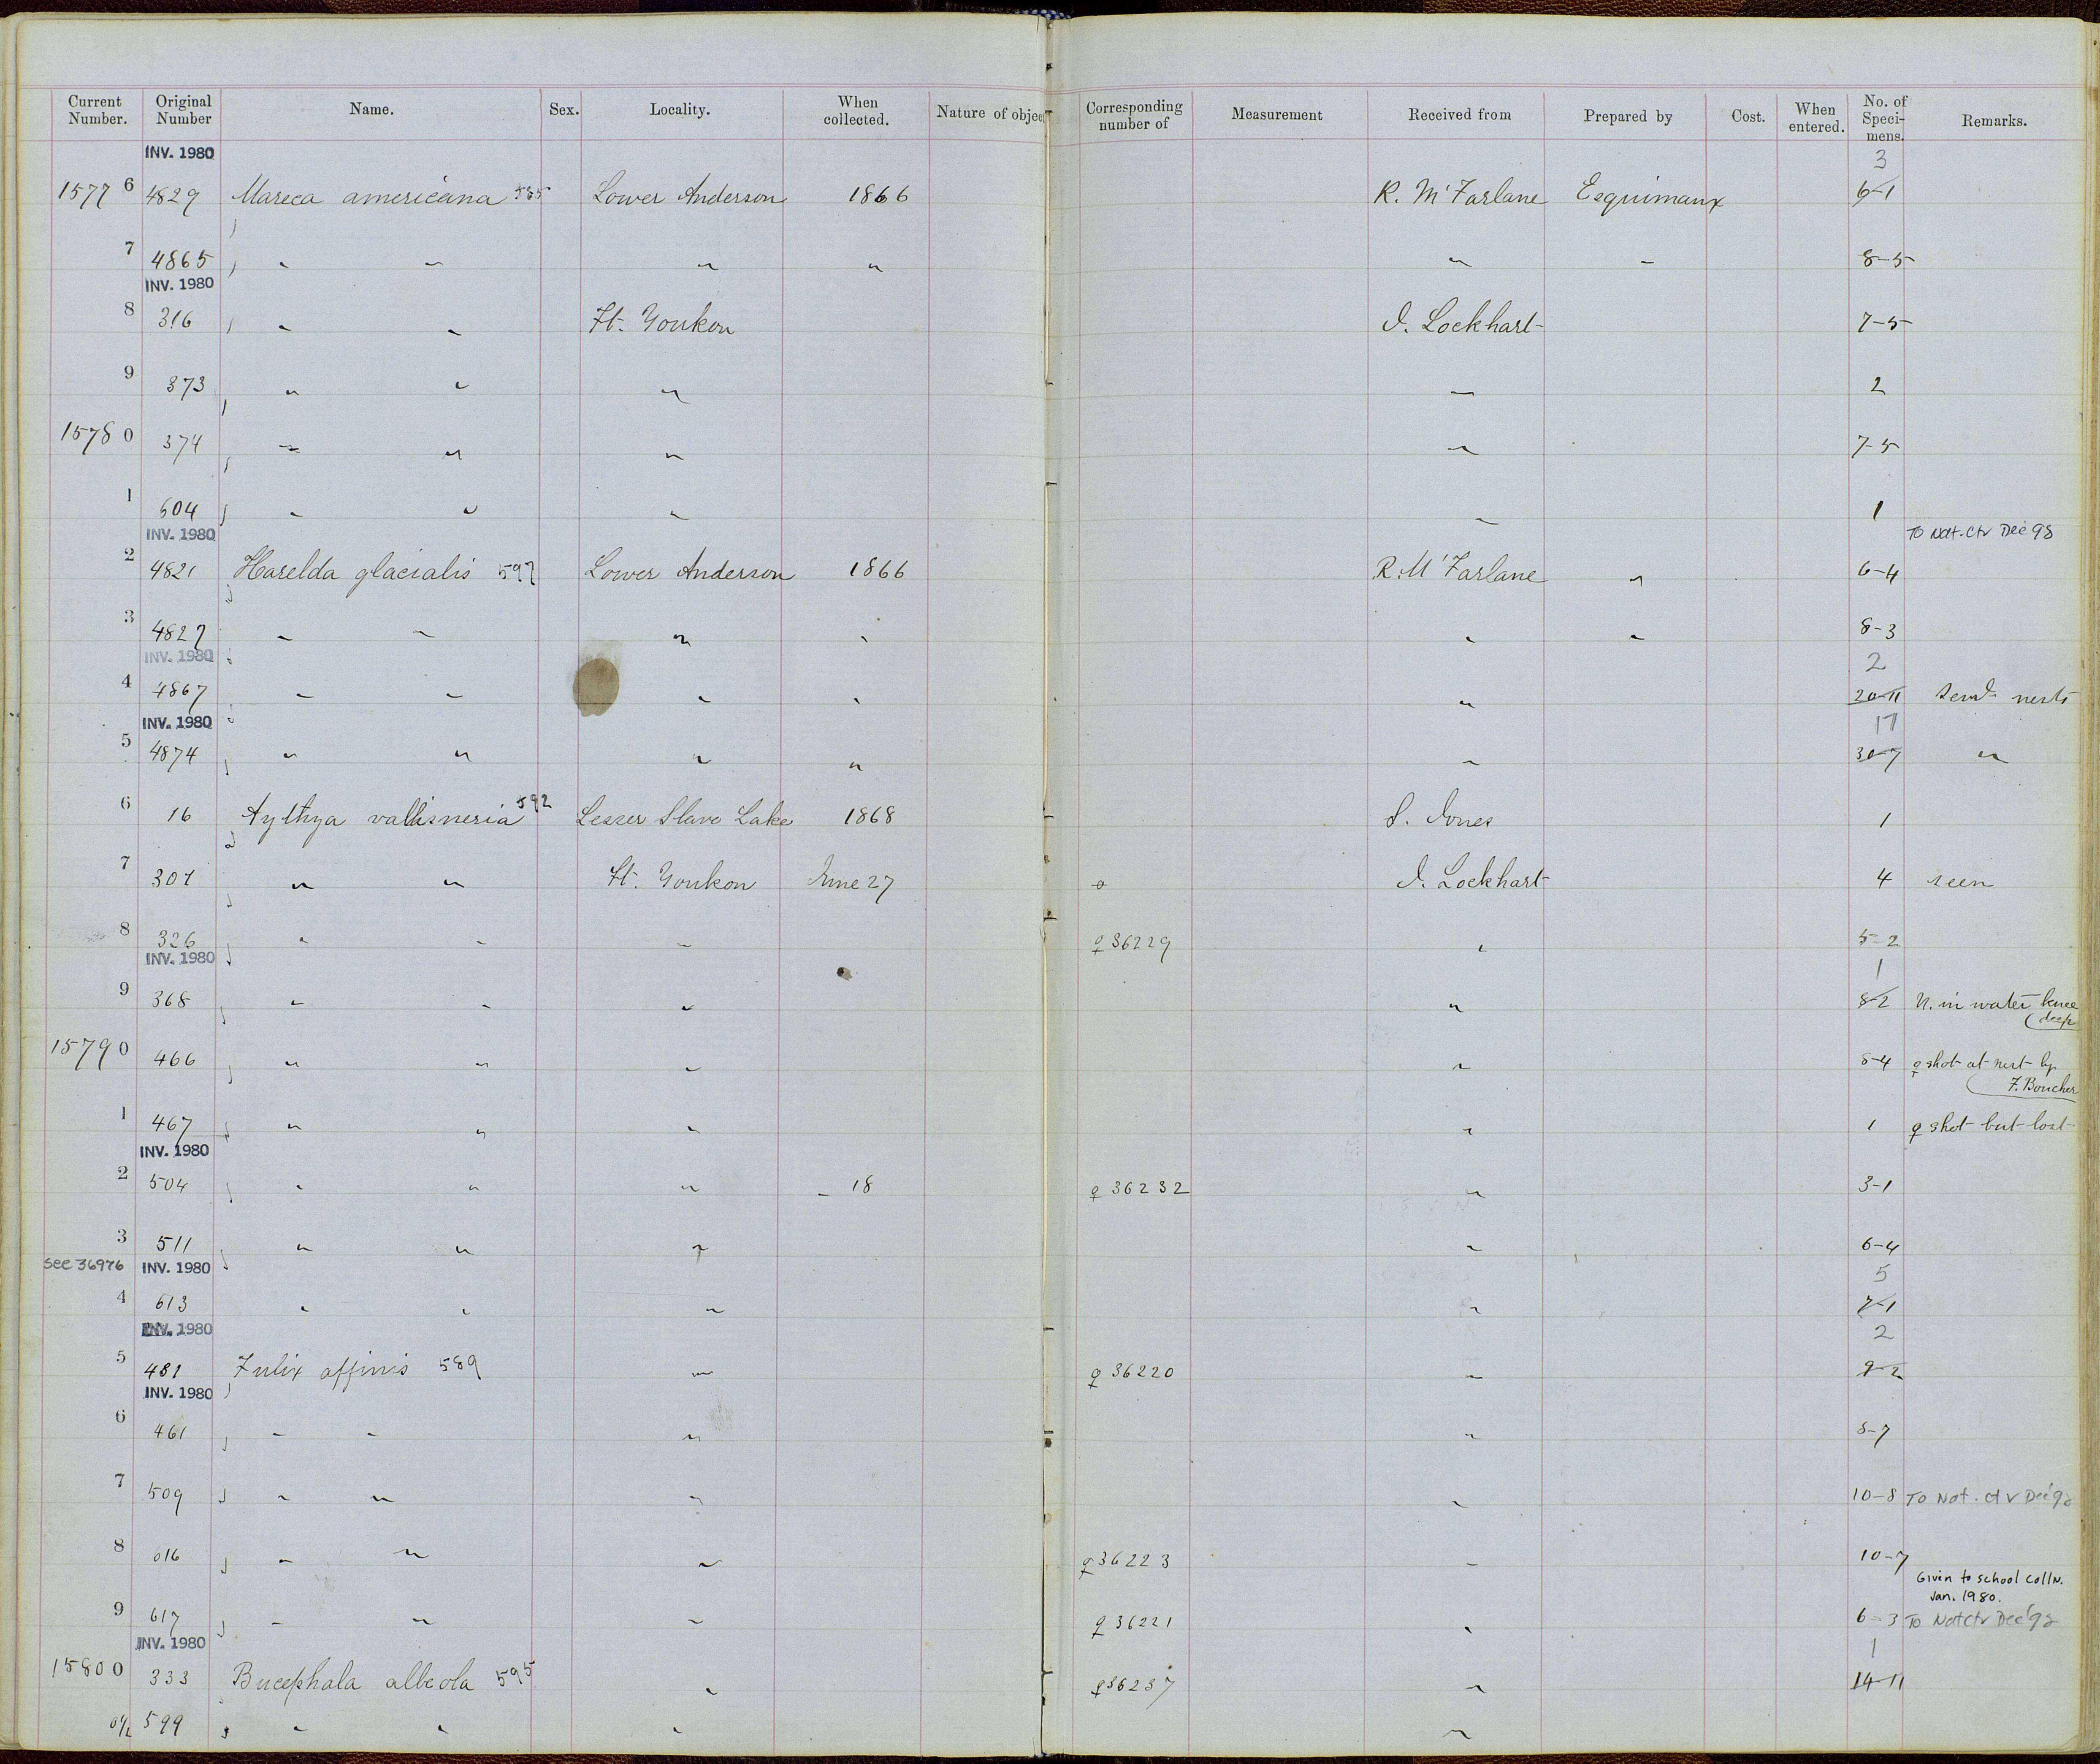 Current Number. Original Number Name. Sex. Locality. When collected. Nature of objec Corresponding number of Measurement Received from Prepared by Cost. When entered. No. of Speci- mens. Remarks.
INV. 1980 3
1577 6 4829 Mareca americana 585 Lower Anderson 1866 R. M'Farlane Esquimaux 6-1
7 4865 " " " " " " 8-5
INV. 1980
8 316 " " Ft. Youkon J. Lockhart 7-5
9 373 " " " " 2
1578 0 374 " " " " 7-5
1 604 " " " " 1
INV. 1980 To Nat. Ctr Dec 98
2 4821 Harelda glacialis 597 Lower Anderson 1866 R. M'Farlane " 6-4
3 4827 " " " " " " 8-3
INV. 1980 2
4 4867 " " " " " 20-11 Sevl. nests
INV. 1980 17
5 4874 " " " " " 30-7 "
6 16 Aythya vallisneria 592 Lesser Slave Lake 1868 S. Jones 1
7 307 " " Ft. Youkon June 27 J. Lockhart 4 seen
8 326 " " " ♀ 36229 " 5-2
INV. 1980 1
9 368 " " " " 8-2 N. in water knee
deep
1579 0 466 " " " " 8-4 ♀ shot at nest by
F. Boucher
1 467 " " " " 1 ♀ shot but lost
INV. 1980
2 504 " " " " 18 ♀ 36232 " 3-1
3 511 " " " " 6-4
see 36976 INV. 1980 5
4 613 " " " " 7-1
INV. 1980 2
5 481 Fulix affinis 589 " ♀ 36220 " 9-2
INV. 1980
6 461 " " " " 8-7
7 509 " " " " 10-8 To Nat. Ctr Dec '98
8 616 " " " ♀ 36223 " 10-7
Given to school colln.
Jan. 1980.
9 617 " " " ♀ 36221 " 6-3 To Nat Ctr Dec '98
INV. 1980 1
1580 0 333 Bucephala albeola 595 " ♀ 36237 " 14-11
01/2 599 " " " "